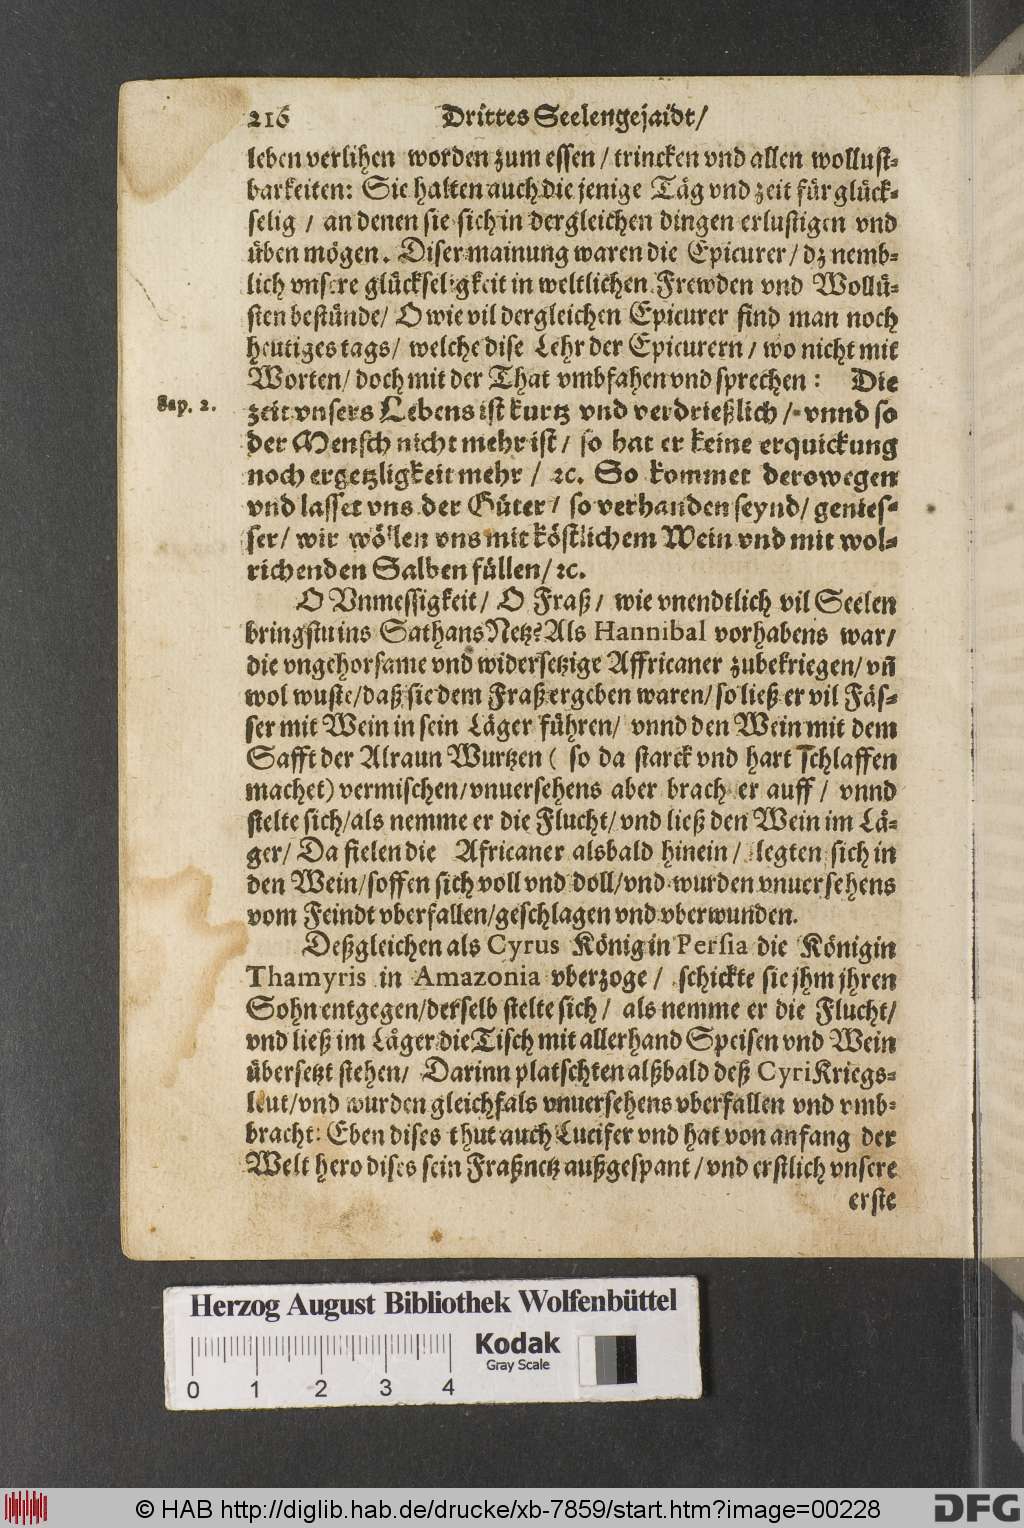 216 Drittes Seelengejaidt/
leben verlihen worden zum essen / trincken vnd allen wollust-
barkeiten: Sie halten auch die jenige Täg vnd zeit für glück-
selig / an denen sie sich in dergleichen dingen erlustigen vnd
üben mögen. Diser mainung waren die Epicurer / dz nemb-
lich vnsere glückseligkeit in weltlichen Frewden vnd Wollü-
sten bestünde/ O wie vil dergleichen Epicurer find man noch
heutiges tags/ welche dise Lehr der Epicurern / wo nicht mit
Worten/ doch mit der That vmbfahen vnd sprechen: Die
Sap. 2.
zeit vnsers Lebens ist kurtz vnd verdrießlich / vnnd so
der Mensch nicht mehr ist/ so hat er keine erquickung
noch ergetzligkeit mehr / ꝛc. So kommet derowegen
vnd lasset vns der Güter / so verhanden seynd/ genies-
ser/ wir wöllen vns mit köstlichem Wein vnd mit wol-
richenden Salben füllen/ ꝛc.
O Vnmessigkeit/ O Fraß/ wie vnendtlich vil Seelen
bringstu ins Sathans Netz? Als Hannibal vorhabens war/
die vngehorsame vnd widersetzige Affricaner zubekriegen/ vñ
wol wuste/ daß sie dem Fraß ergeben waren/ so ließ er vil Fäs-
ser mit Wein in sein Läger führen/ vnnd den Wein mit dem
Safft der Alraun Wurtzen ( so da starck vnd hart schlaffen
machet) vermischen/ vnuersehens aber brach er auff / vnnd
stelte sich/ als nemme er die Flucht/ vnd ließ den Wein im Lä-
ger/ Da fielen die Africaner alsbald hinein / legten sich in
den Wein/ soffen sich voll vnd doll/ vnd wurden vnuersehens
vom Feindt vberfallen/ geschlagen vnd vberwunden.
Deßgleichen als Cyrus König in Persia die Königin
Thamyris in Amazonia vberzoge / schickte sie jhm jhren
Sohn entgegen/ derselb stelte sich / als nemme er die Flucht/
vnd ließ im Läger die Tisch mit allerhand Speisen vnd Wein
übersetzt stehen/ Darinn platschten alßbald deß Cyri Kriegs-
leut/ vnd wurden gleichfals vnuersehens vberfallen vnd vmb-
bracht: Eben dises thut auch Lucifer vnd hat von anfang der
Welt hero dises sein Fraßnetz außgespant / vnd erstlich vnsere
erste
Herzog August Bibliothek Wolfenbüttel
Kodak
Gray Scale
0 1 2 3 4
© HAB http://diglib.hab.de/drucke/xb-7859/start.htm?image=00228
DFG